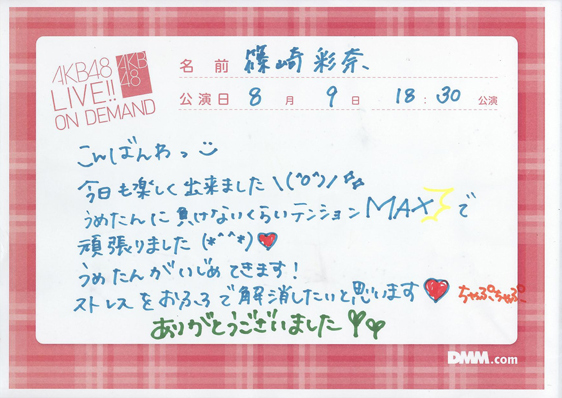 AKB48
LIVE!!
ON DEMAND
AKB
48
名前 篠崎彩奈、
公演日 8月 9日 18:30 公演
こんばんわっ
今日も楽しく出来ました\(^o^)/
うめたんに負けないくらいテンションMAXで
頑張りました(*^^*)
うめたんがいじめてきます!
ストレスをおふろで解消したいと思います ちゃぷちゃぷ
ありがとうございました
DMM.com